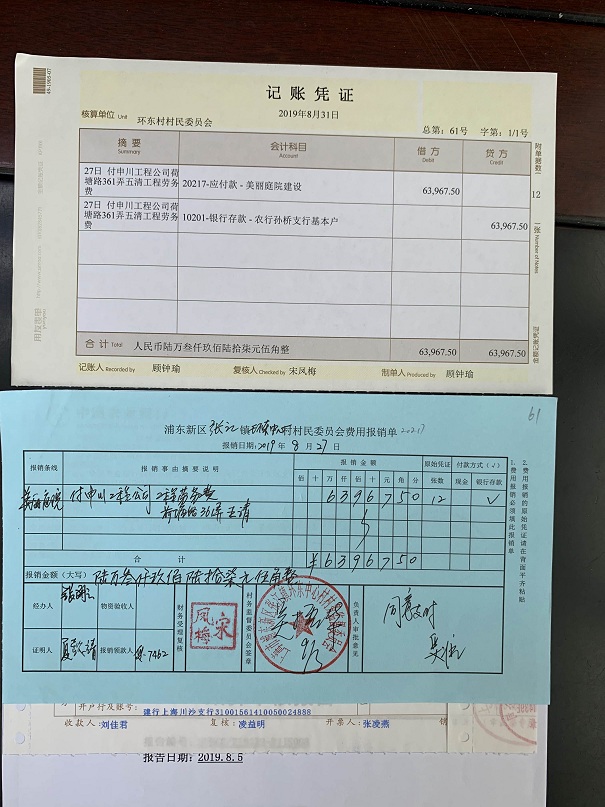 记账凭证
2019年8月31日
核算单位 Unit 环东村村民委员会
总第：61号 字第：1/1号
摘要 Summary 会计科目 Account 借方 Debit 贷方 Credit
27日 付申川工程公司荷
塘路361弄五清工程劳务
费
20217-应付款 - 美丽庭院建设 63,967.50
27日 付申川工程公司荷
塘路361弄五清工程劳务
费
10201-银行存款 - 农行孙桥支行基本户 63,967.50
合计 Total 人民币陆万叁仟玖佰陆拾柒元伍角整 63,967.50 63,967.50
记账人 Recorded by 顾钟瑜 复核人 Checked by 宋凤梅 制单人 Prepared by 顾钟瑜
附单据数 12 张 Number of Notes
金额记账凭证
61
浦东新区张江镇环东中心村村民委员会费用报销单 20217
报销日期：2019年8月27日
报销条线 报销事由摘要说明 报销金额 原始凭证 付款方式（√）
佰 十 万 仟 佰 十 元 角 分 张数 现金 银行存款
美丽庭院 付申川工程公司 工程劳务费 6396750 12 √
荷塘路361弄五清
合计 ¥6396750
报销金额（大写）陆万叁仟玖佰陆拾柒元伍角整
经办人 物资验收人 财务受理复核 凤梅宋 村务监督委员会签章 负责人审批意见 同意支付
证明人 报销领款人 7462
1.费用报销必须填此报销单
2.费用报销的原始凭证请在背面平齐粘贴
开户行及账号： 建行上海川沙支行31001561410050024888
收款人：刘佳君 复核：凌益明 开票人：张凌燕 销
报告日期：2019.8.5